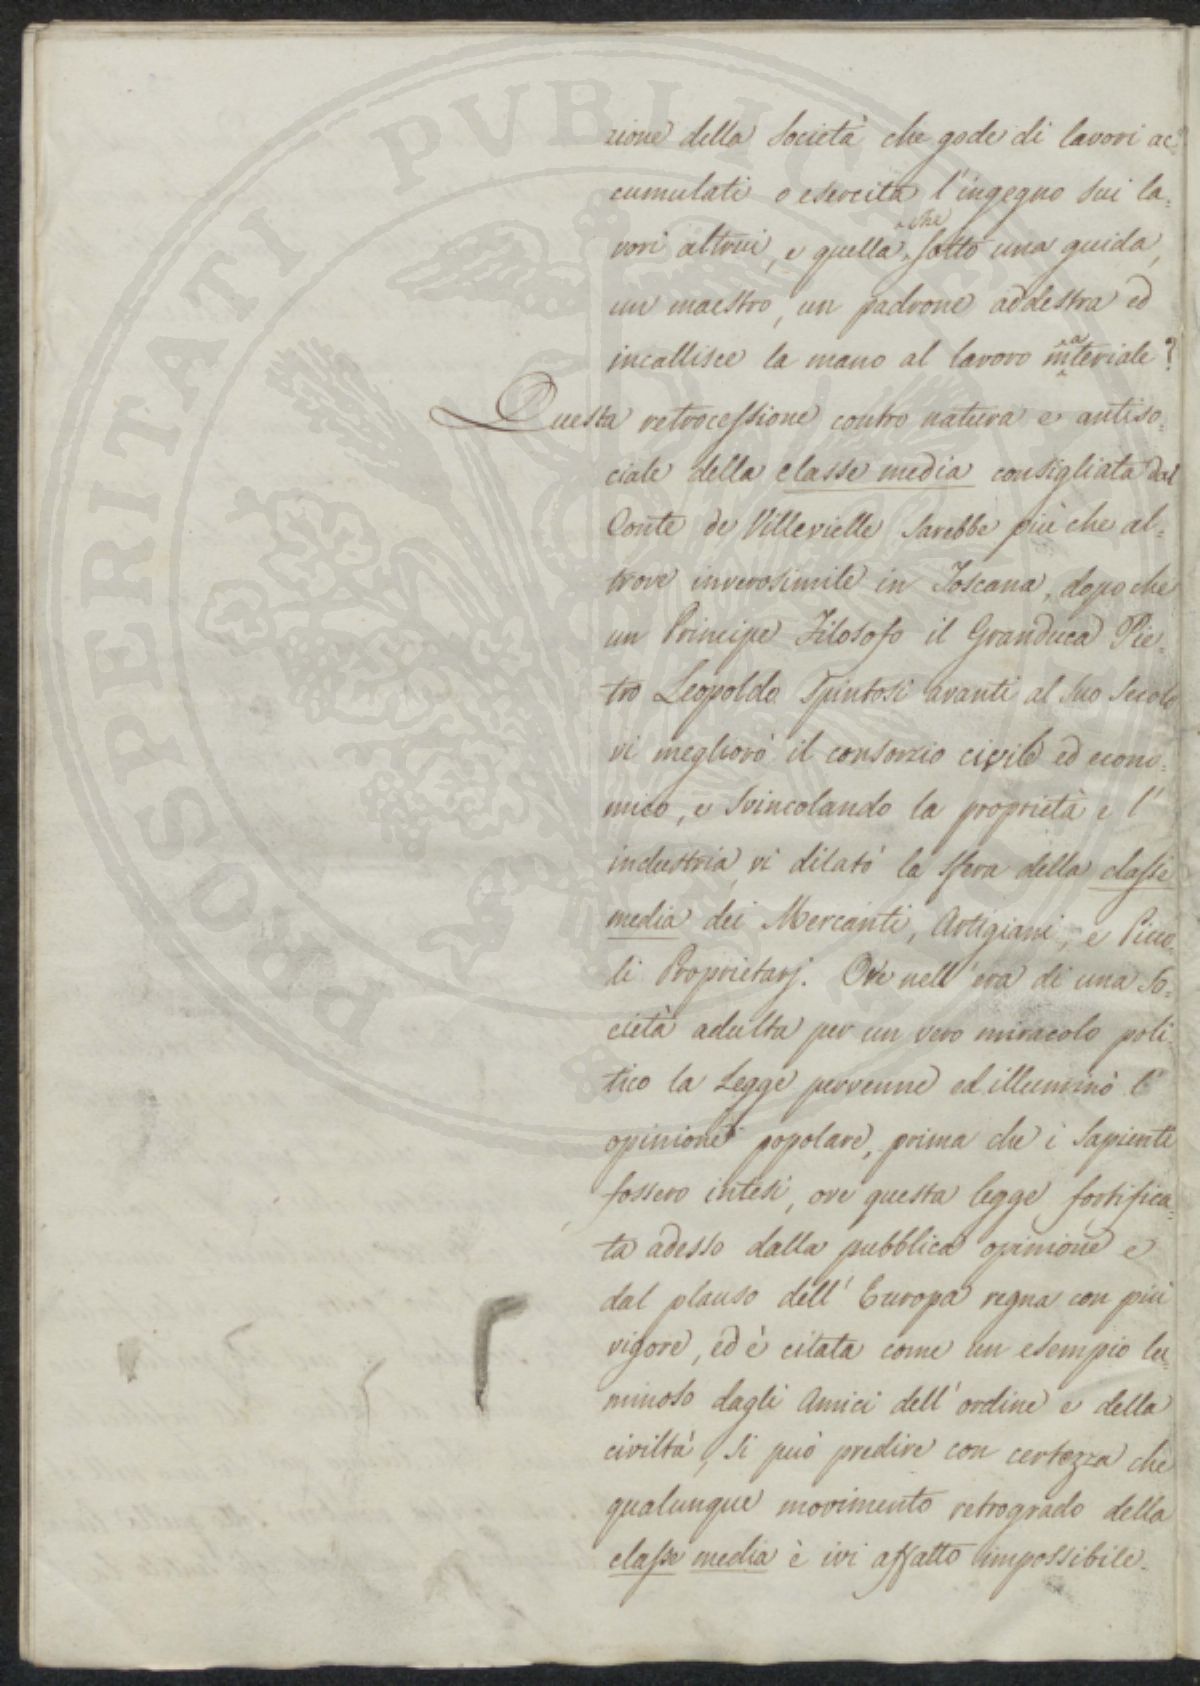 PROSPERITATI PVBLICAE
zione della Società che gode di lavori ac=
cumulati o esercita l'ingegno sui la=
vori altrui, e quella ^che sotto una guida,
un maestro, un padrone addestra ed
incallisce la mano al lavoro materiale?
Questa retrocessione contro natura e antiso=
ciale della classe media consigliata dal
Conte de Villevielle sarebbe più che al=
trove inverosimile in Toscana, dopo che
un Principe Filosofo il Granduca Pie=
tro Leopoldo spintosi avanti al suo secolo
vi megliorò il consorzio civile ed econo=
mico, e svincolando la proprietà e l'
industria, vi dilatò la sfera della classe
media dei Mercanti, Artigiani, e Picco=
li Proprietarj. Ove nell'era di una So=
cietà adulta per un vero miracolo poli
tico la Legge pervenne ed illuminò l'
opinione popolare, prima che i Sapienti
fossero intesi, ove questa legge fortifica=
ta adesso dalla pubblica opinione e
dal plauso dell'Europa regna con più
vigore, ed è citata come un esempio lu=
minoso dagli Amici dell'ordine e della
civiltà, si può predire con certezza che
qualunque movimento retrogrado della
classe media è ivi affatto impossibile.